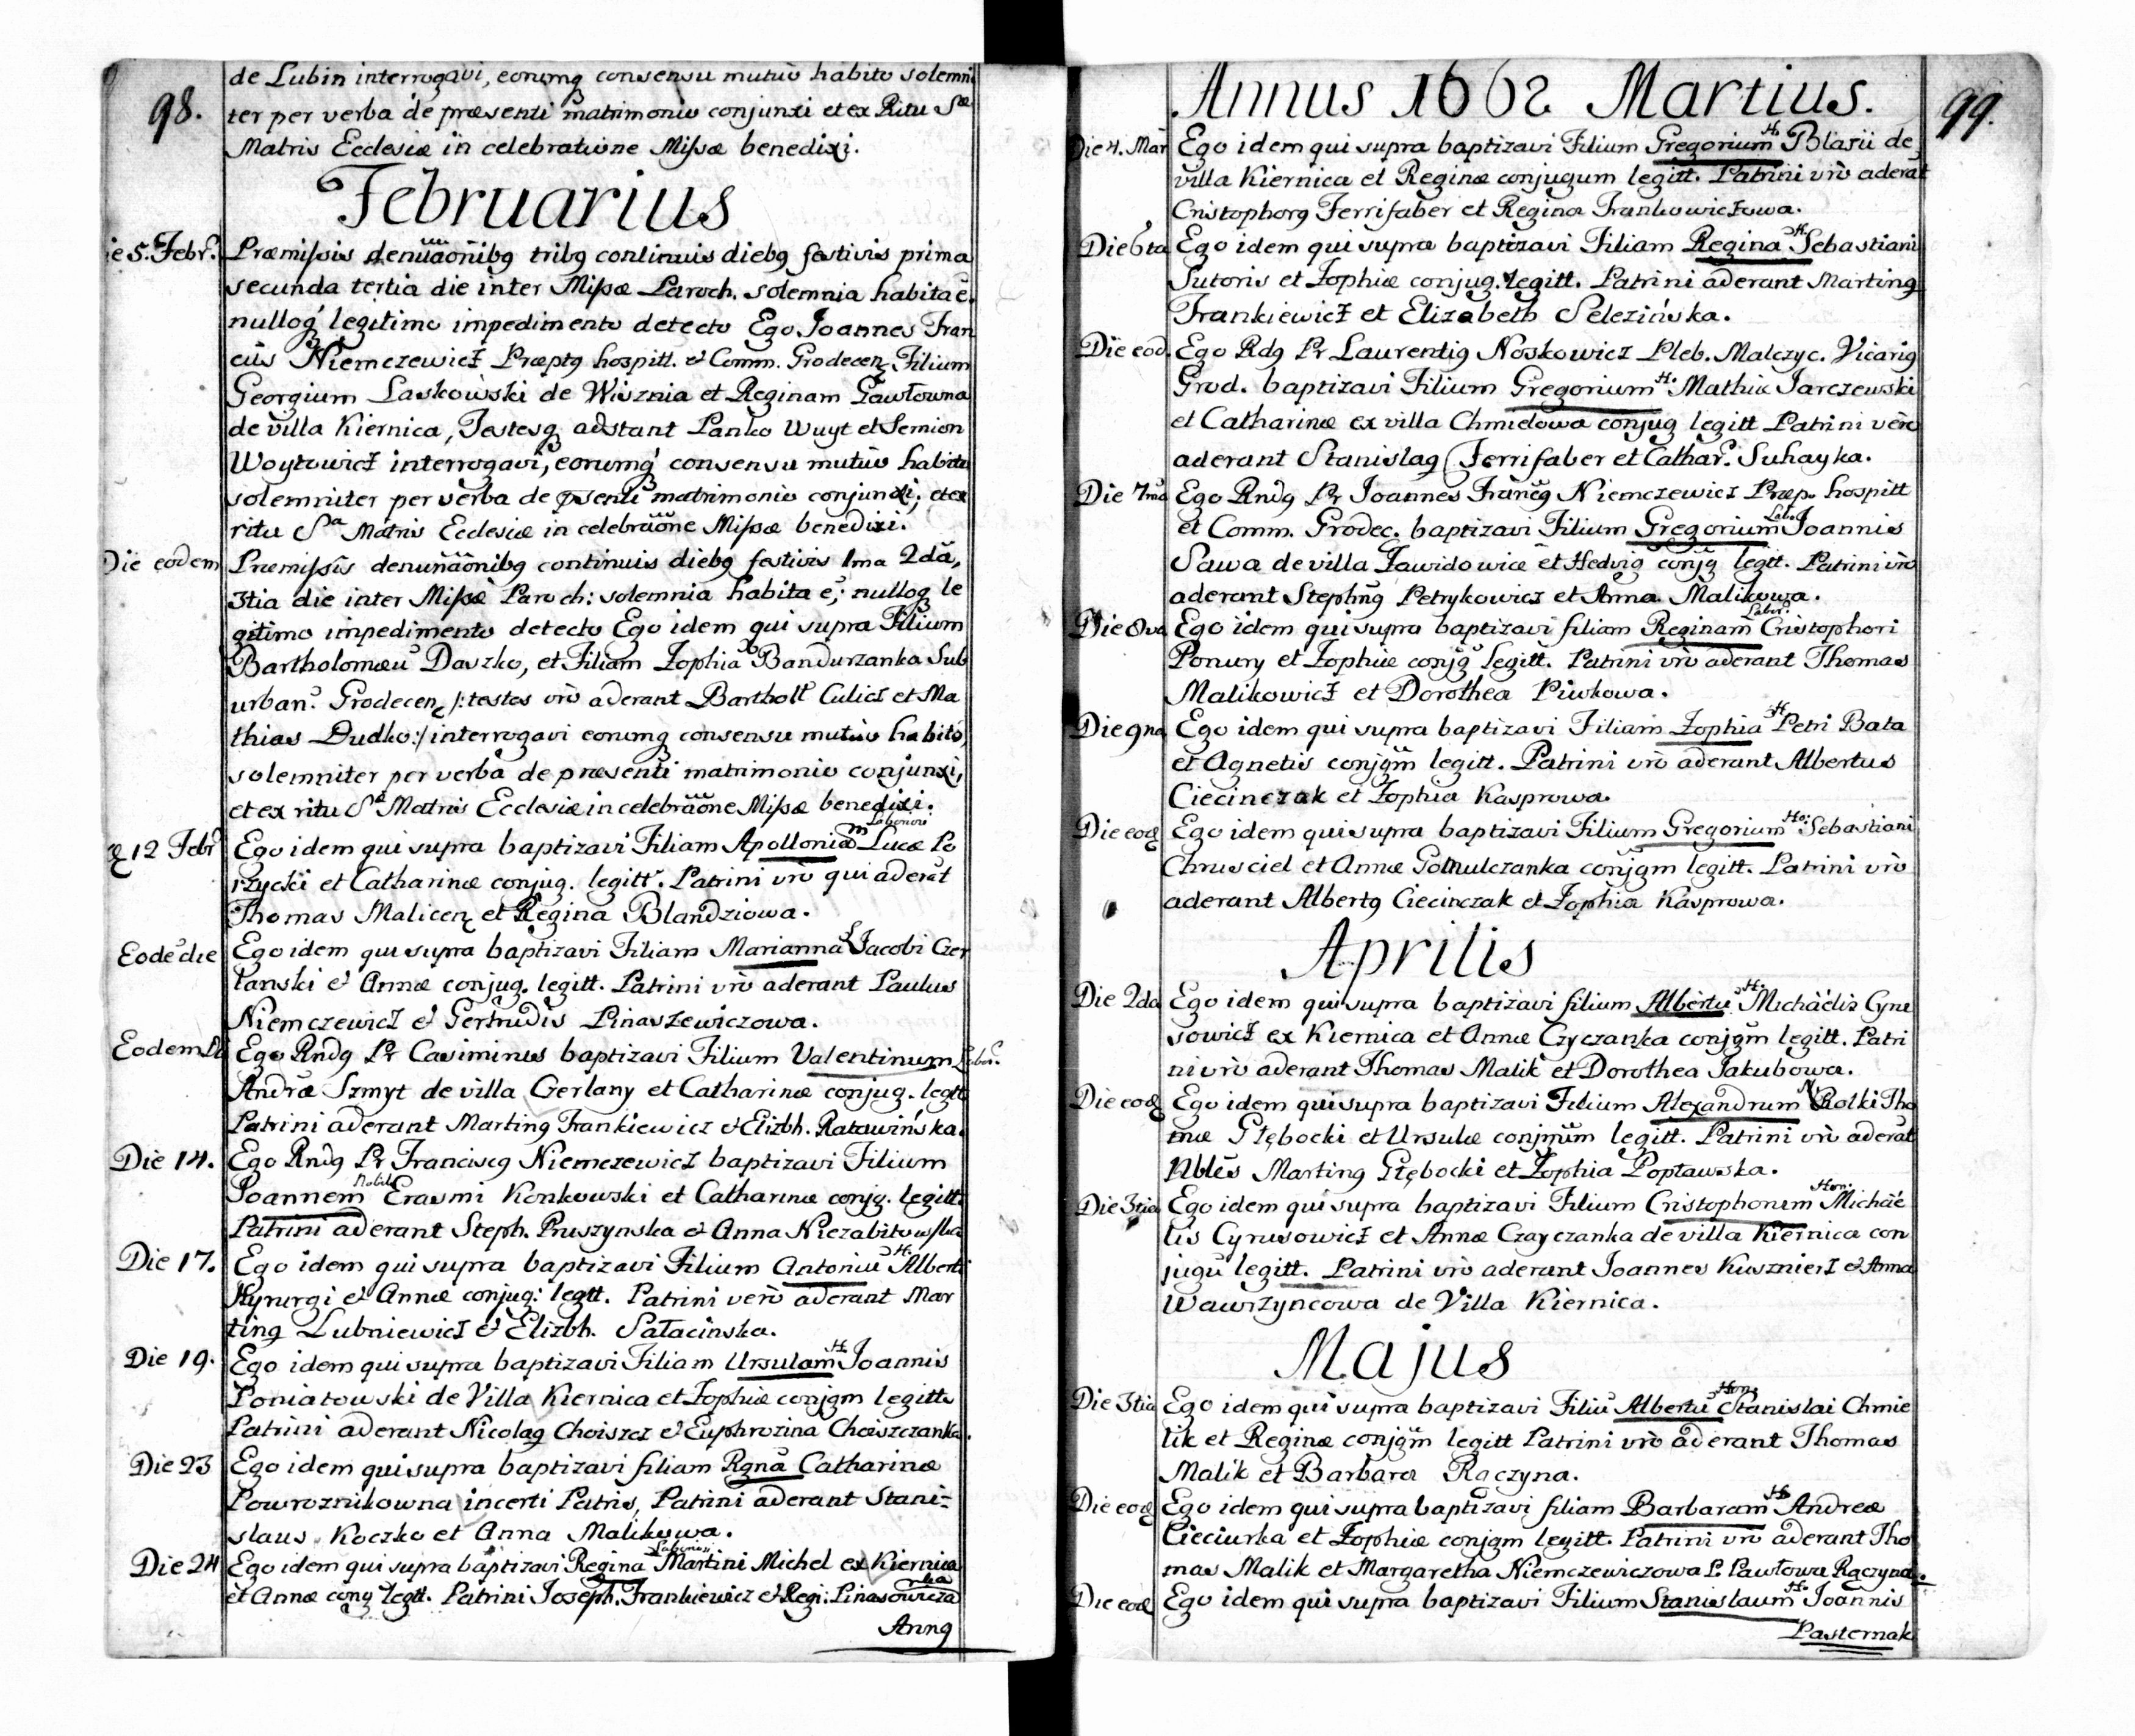 98.
de Lubin interrogavi, eorumq consensu mutuo habito solemni
ter per verba de præsenti matrimonio conjunxi et ex Ritu Sæ
Matris Ecclesiæ in celebratione Missæ benedixi.
Februarius
ie 5. Febr. Præmissis denuãonibq tribq continuis diebq festivis prima
secunda tertia die inter Missæ Paroch. solemnia habita ẽ.
nulloq legitimo impedimento detecto Ego Joannes Fran
cus Niemczewicz Præptq hospitt. & Comm. Grodecen Filium
Georgium Laskowski de Wisznia et Reginam Gawłowna
de villa Kiernica, Testesq adstant Panko Wuyt et Semion
Woytowicz interrogavi, eorumq consensu mutuo habito
solemniter per verba de psenti matrimonio conjunxi, et ex
ritu Sa Matris Ecclesiæ in celebrãone Missæ benedixi.
Die eodem Præmissis denunãonibq continuis diebq festivis 1ma 2da,
3tia die inter Missæ Paroch: solemnia habita ẽ; nulloq le
gitimo impedimento detecto Ego idem qui supra Filium
Bartholomæu Daszko, et Filiam Zophia Bandurzanka Sub
urban. Grodecen /: testes vro aderant Bartholt Culicz et Ma
thias Dudko:/ interrogavi eorumq consensu mutuo habito,
solemniter per verba de præsenti matrimonio conjunxi,
et ex ritu Sæ Matris Ecclesiæ in celebrãone Missæ benedixi.
12 Febr Ego idem qui supra baptizavi Filiam Apolloniam Laboriosi Lucæ Po
rzycki et Catharinæ conjug. legitt. Patrini vro qui aderãt
Thomas Malicen et Regina Blandziowa.
Eodẽ die Ego idem qui supra baptizavi Filiam Marianna L Jacobi Czer
lanski & Annæ conjug. legitt. Patrini vro aderant Paulus
Niemczewicz & Gertrudis Pinaszewiczowa.
Eodem Di Ego Rndq Pr Casimirus baptizavi Filium Valentinum Labor.
Andræ Szmyt de villa Cerlany et Catharinæ conjug. legtt
Patrini aderant Martinq Frankiewicz & Elizbh. Ratawińska.
Die 14. Ego Rndq Pr Franciscq Niemczewicz baptizavi Filium
Joannem Nobil Erasmi Konkowski et Catharinæ conjg. legitt.
Patrini aderant Steph. Pruszynska & Anna Niezabitowska
Die 17. Ego idem qui supra baptizavi Filium Antoniũ H. Alberti
Kyrurgi & Annæ conjug: legtt. Patrini vero aderant Mar
tinq Lubniewicz & Elizbh. Sałacinska.
Die 19. Ego idem qui supra baptizavi Filiam Ursulam H Joannis
Poniatowski de Villa Kiernica et Zophiæ conjgm legitt
Patrini aderant Nicolaq Choiszcz & Euphrozina Choiszczanka.
Die 23 Ego idem qui supra baptizavi filiam Rgnã Catharinæ
Powroznikowna incerti Patris, Patrini aderant Stani-
slaus Koczko et Anna Malikowa.
Die 24 Ego idem qui supra baptizavi Regina Laboriosi Martini Michel ex Kiernica
et Annæ conq legtt. Patrini Joseph. Frankiewicz & Regi: Pinasowicza
Annq
99.
Annus 1662 Martius.
Die 4. Mar Ego idem qui supra baptizavi Filium Gregorium H. Blasii de
villa Kiernica et Reginæ conjugum legitt. Patrini vro aderãt
Cristophorq Ferrifaber et Regina Frankowiczowa.
Die 6ta Ego idem qui supra baptizavi Filiam Regina H. Sebastiani
Sutoris et Zophiæ conjug. legitt. Patrini aderant Martinq
Frankiewicz et Elizabeth Selezińska.
Die eod. Ego Rdq Pr Laurentiq Noskowicz Pleb. Malczyc. Vicariq
Grod. baptizavi Filium Gregorium H. Mathiæ Jarczewski
et Catharinæ ex villa Chmielowa conjug legitt Patrini vero
aderant Stanislaq Ferrifaber et Cathar. Suhayka.
Die 7ma Ego Rndq Pr Joannes Francq Niemczewicz Præp. hospitt
et Comm. Grodec. baptizavi Filium Gregorium Lab. Joannis
Sawa de villa Zawidowice et Hedvig conjg legtt. Patrini vro
aderant Stephnq Petrykowicz et Anna Malikowa.
Die 8va Ego idem qui supra baptizavi filiam Reginam Labor. Cristophori
Ponury et Zophiæ conjg legitt. Patrini vro aderant Thomas
Malikowicz et Dorothea Piwkowa.
Die 9na Ego idem qui supra baptizavi Filiam Zophia H. Petri Bata
et Agnetis conjgm legitt. Patrini vro aderant Albertus
Ciecinczak et Zophia Kasprowa.
Die eod Ego idem qui supra baptizavi Filium Gregorium Ho: Sebastiani
Chrusciel et Annæ Gomulczanka conjgm legitt. Patrini vro
aderant Albertq Ciecinczak et Zophia Kasprowa.
Aprilis
Die 2da Ego idem qui supra baptizavi filium Albertu H. Michaëlis Cyru
sowicz ex Kiernica et Annæ Czyczanka conjgm legitt. Patri
ni vro aderant Thomas Malik et Dorothea Jakubowa.
Die eod Ego idem qui supra baptizavi Filium Alexandrum N. Rolki Tho
mæ Głębocki et Ursulæ conjugum legitt. Patrini vro aderãt
Nbles Martinq Głębocki et Zophia Popławska.
Die 3tia Ego idem qui supra baptizavi Filium Cristophorum Hon: Michaë
lis Cyrusowicz et Annæ Czayczanka de villa Kiernica con
jugũ legitt. Patrini vro aderant Joannes Kusznierz & Anna
Wawrzyncowa de Villa Kiernica.
Majus
Die 3tia Ego idem qui supra baptizavi Filiũ Albertũ Hon. Stanislai Chmie
lik et Reginæ conjgm legitt Patrini vro aderant Thomas
Malik et Barbara Rączyna.
Die eod Ego idem qui supra baptizavi filiam Barbaram H. Andreæ
Cieciurka et Zophiæ conjgm legitt. Patrini vro aderant Tho
mas Malik et Margaretha Niemczewiczowa P. Pawłowa Rączyna.
Die eod Ego idem qui supra baptizavi Filium Stanislaum H. Joannis
Pasternak